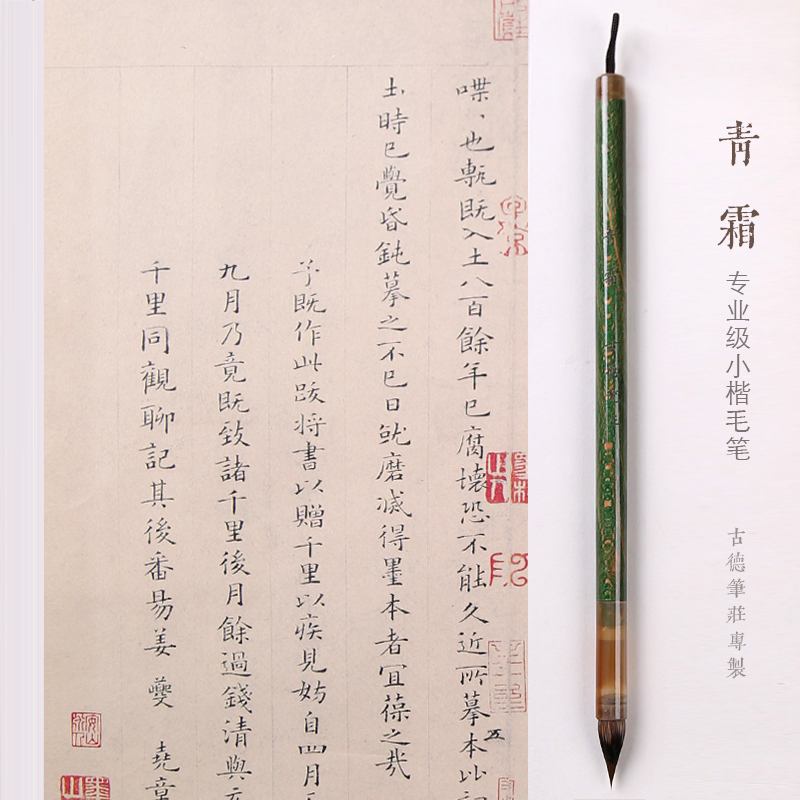 青霜
专业级小楷毛笔
古德筆莊專製
喋、也甎既入土八百餘年已腐壞恐不能久近所摹本比
五
圡時已覺昏鈍摹之不已日就磨滅得墨本者宜葆之哉
予既作此跋将書以贈千里以疾見妨自四月
九月乃竟既致諸千里後月餘過錢清與
千里同觀聊記其後番昜姜夔堯章